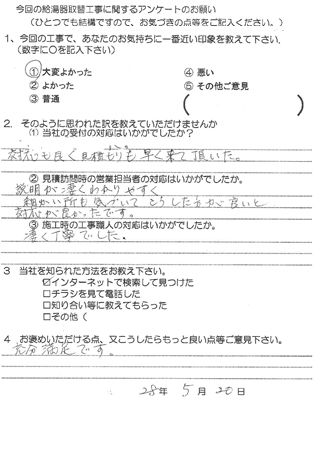 今回の給湯器取替工事に関するアンケートのお願い
(ひとつでも結構ですので、お気づきの点等をご記入ください。)
1、今回の工事で、あなたのお気持ちに一番近い印象を教えて下さい。
(数字に○を記入下さい)
①大変よかった ④ 悪い
② よかった ⑤ その他ご意見
③ 普通 ( )
2. そのように思われた訳を教えていただけませんか
(1) 当社の受付の対応はいかがでしたか?
対応も良く見積もりも早く来て頂いた。
② 見積訪問時の営業担当者の対応はいかがでしたか。
説明が凄くわかりやすく、
細かい所も気づいて こうした方が良いと
対応が良かったです。
③ 施工時の工事職人の対応はいかがでしたか。
凄く丁寧でした。
3 当社を知られた方法をお教え下さい。
☑インターネットで検索して見つけた
□チラシを見て電話した
□知り合い等に教えてもらった
□その他 (
4 お褒めいただける点、又こうしたらもっと良い点等ご意見下さい。
充分満足です。
28年 5月 20日